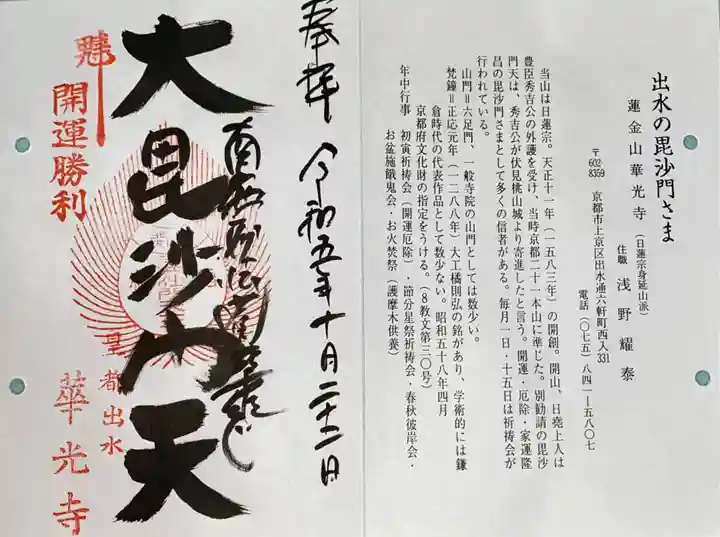 出水の毘沙門さま
蓮金山華光寺(日蓮宗身延山派)
住職 浅野耀泰
〒602-8359 京都市上京区出水通六軒町西入331
電話(〇七五)八四一―五八〇七
当山は日蓮宗。天正十一年(一五八三年)の開創。開山、日堯上人は
豊臣秀吉公の外護を受け、当時京都二十一本山に準じた。別勧請の毘沙
門天は、秀吉公が伏見桃山城より寄進したと言う。開運・厄除・家運隆
昌の毘沙門さまとして多くの信者がある。毎月一日・十五日は祈祷会が
行われている。
山門=六足門、一般寺院の山門としては数少い。
梵鐘=正応元年(一二八八年)大工橘則弘の銘があり、学術的には鎌
倉時代の代表作品として数少ない。昭和五十八年四月
京都府文化財の指定をうける。(8教文第三〇号)
年中行事 初寅祈祷会(開運厄除)・節分星祭祈祷会・春秋彼岸会・
お盆施餓鬼会・お火焚祭(護摩木供養)
奉拝 令和五年十月二十二日
南無妙法蓮華経
大毘沙門天
皇都出水
開運勝利
華光寺